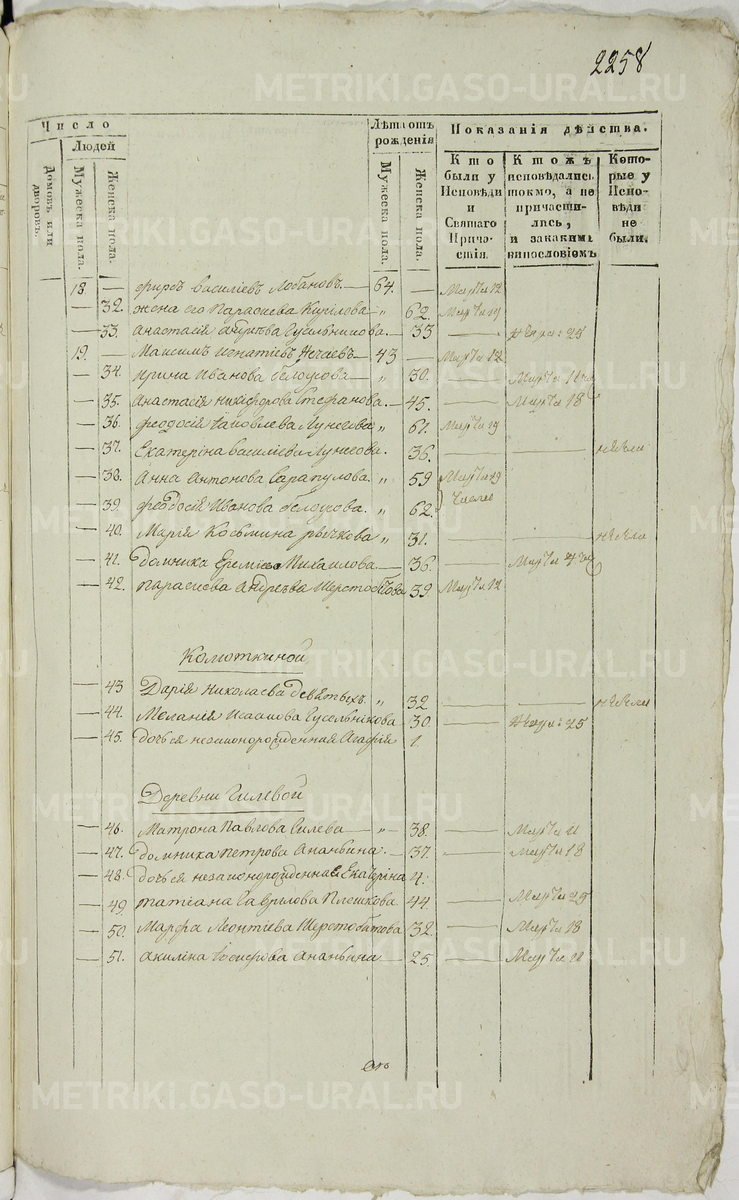 2258
Число
Людей
Домовъ или дворовъ.
Мужеска пола.
Женска пола.
Лѣта отъ рожденія
Мужеска пола.
Женска пола.
Показанія дѣйства.
Кто были у Исповѣди и Святаго Причастія.
Ктожъ исповѣдались токмо, а не причастились, и за какимъ винословіемъ
Которые у Исповѣди не были.
18. — Фирсъ Василіевъ Лобановъ — 64. — Марта 12
— 32. жена его Параскева Кирилова „ 62. Марта 19
— 33. Анастасія Андреева Гусельникова. — 33 —
19. — Максимъ Игнатіевъ Нечаевъ — 43 — Марта 12
— 34. Ирина Иванова Белоусова — „ 30. — Марта 11
— 35. Анастасія Никифорова Стефанова. — 45. — Марта 18
— 36. Феодосія Іаковлева Лунегова „ 61. Марта 19
— 37. Екатерина Василіева Лунегова. 36. — —
— 38. Анна Антонова Сарапулова. „ 59 Марта 19
— 39. Феодосія Иванова Белоусова. „ 62. числа
— 40. Марія Косьмина Рычкова „ 31. — —
— 41. Домника Еремѣева Михаилова — 36. — Марта 4
— 42. Параскева Андреева Шерстобитова 39 Марта 12
Колоткиной
— 43 Дарія Николаева Девятыхъ „ 32 — —
— 44. Меланія Исаакова Гусельникова 30. —
— 45. дочь ея незаконорожденная Агафія 1.
Деревни Гилевой
— 46. Матрона Павлова Гилева — „ — 38. — Марта 11
— 47. Домника Петрова Ананьина. — 37. — Марта 18
— 48. дочь ея незаконорожденная Екатерина 4.
— 49. Татіана Гаврилова Плешкова. 44. — Марта 25
— 50. Марфа Леонтіева Шерстобитова 32. — Марта 18
— 51. Акилина Іосифова Ананьина — 25. — Марта 11
METRIKI.GASO-URAL.RU